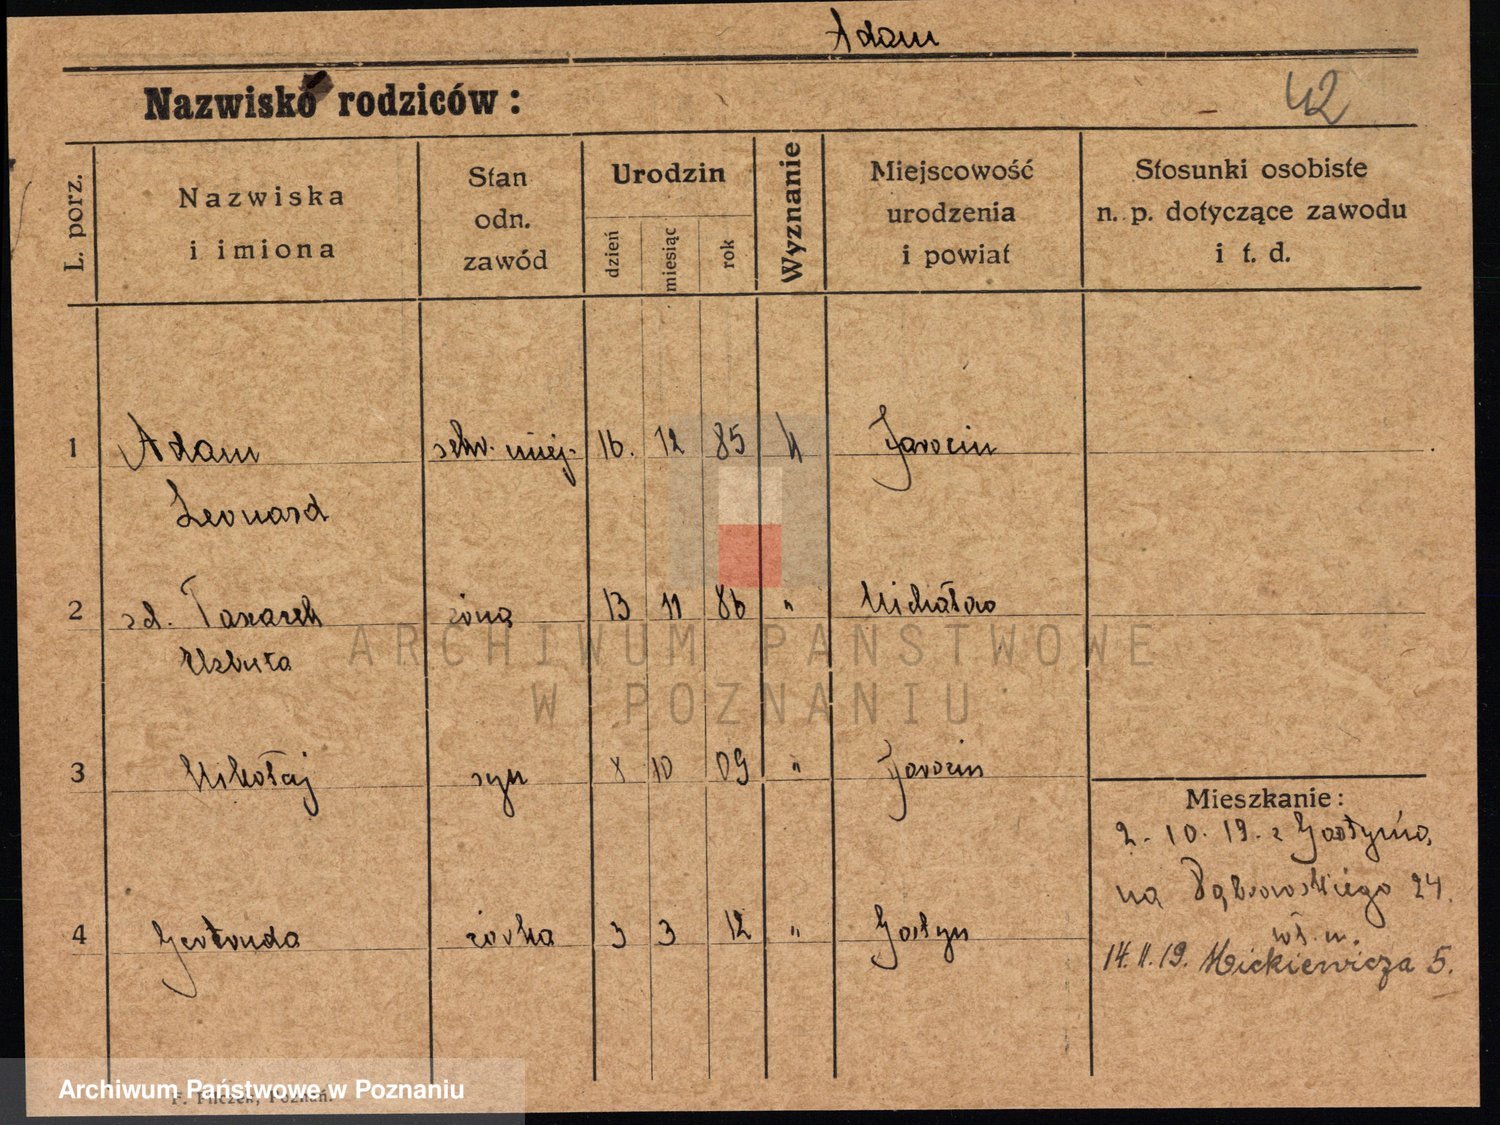 Adam
Nazwisko rodziców:
42
L. porz.
Nazwiska
i imiona
Stan
odn.
zawód
Urodzin
dzień
miesiąc
rok
Wyznanie
Miejscowość
urodzenia
i powiat
Stosunki osobiste
n. p. dotyczące zawodu
i t. d.
1 Adam miej- 16. 12 85 Jarocin
Leonard
2 13 11 86 "
3 Mikołaj syn 8 10 09 " Jarocin
4 Gertruda córka 3 3 12 " Gostyń
Mieszkanie:
2. 10. 19. z Gostynia,
na Dąbrowskiego 24.
14. 11. 19. Mickiewicza 5.
ARCHIWUM PAŃSTWOWE
W POZNANIU
Archiwum Państwowe w Poznaniu
F. Poznań.